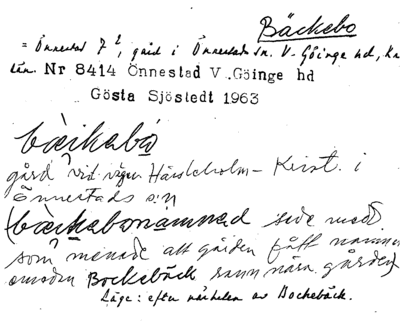 Bäckebo
= Önnestad 7², gård i Önnestads sn. V. Göinge hd, Kr.
län. Nr 8414 Önnestad V. Göinge hd
Gösta Sjöstedt 1963
bæ̀ikabó
gård vid vägen Hässleholm - Krist. i
Önnestads sn
(bæ̀ikabonamned
som menade att gården fått namn
Bockebäck rann nära gården)
Läge: efter närheten av Bockebäck.